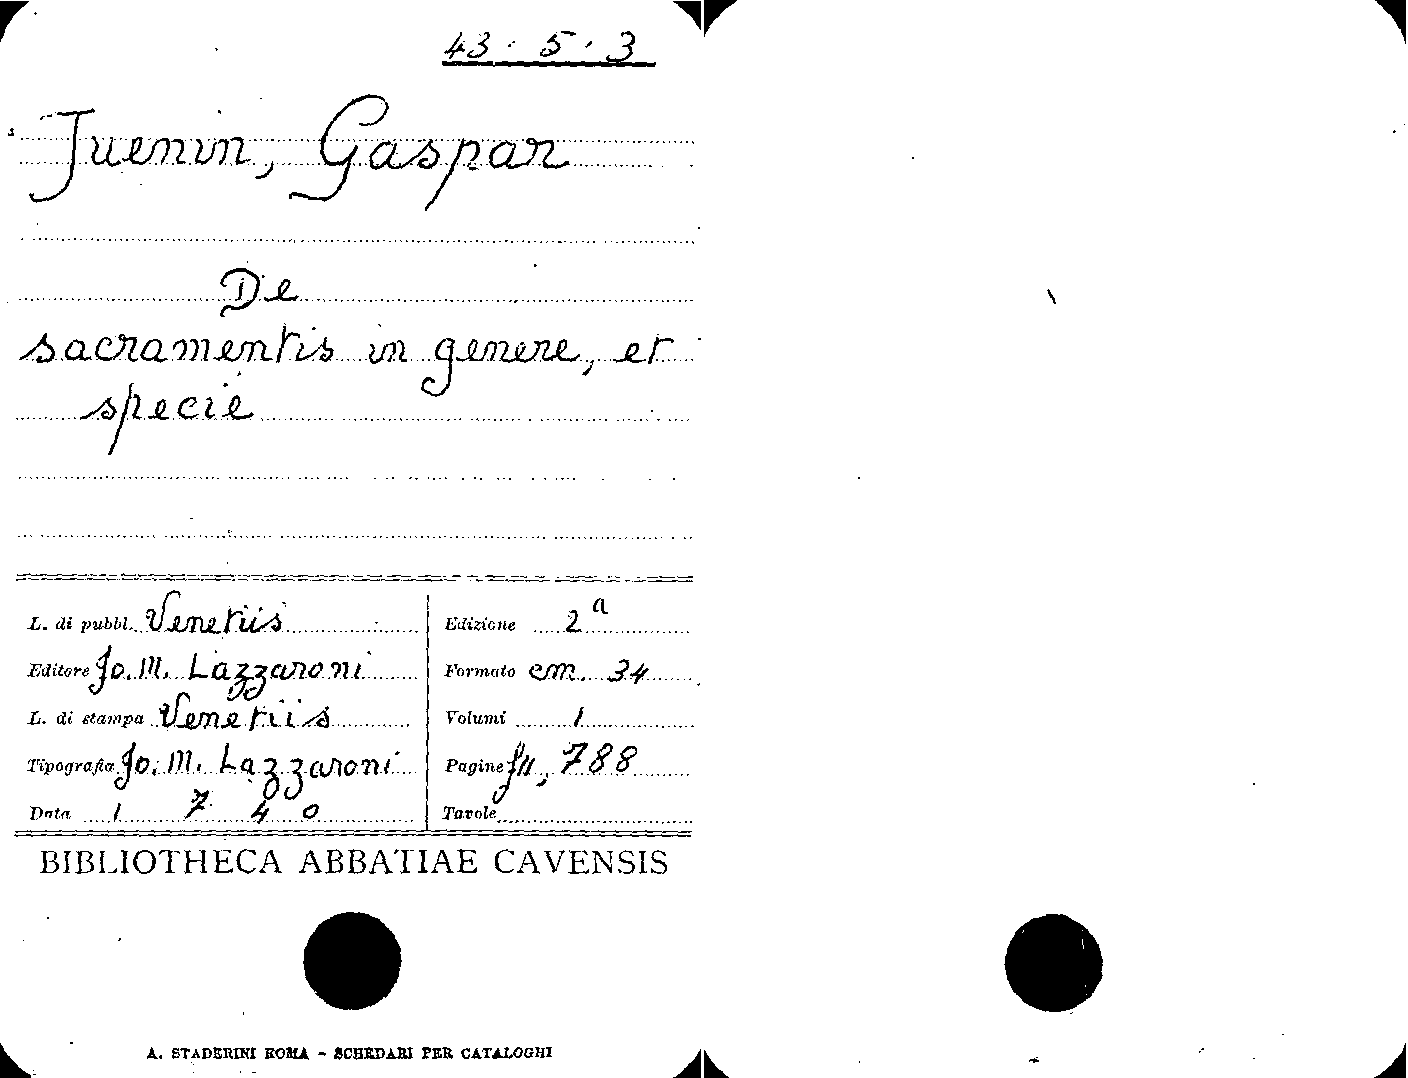 43 · 5 · 3
Juenin, Gaspar
De
sacramentis in genere, et
specie
L. di pubbl. Venetiis
Edizione 2a
Editore Jo. M. Lazzaroni
Formato cm. 34
L. di stampa Venetiis
Volumi 1
Tipografia Jo. M. Lazzaroni
Pagine 788
Data 1740
Tavole
BIBLIOTHECA ABBATIAE CAVENSIS
A. STADERINI ROMA - SCHEDARI PER CATALOGHI